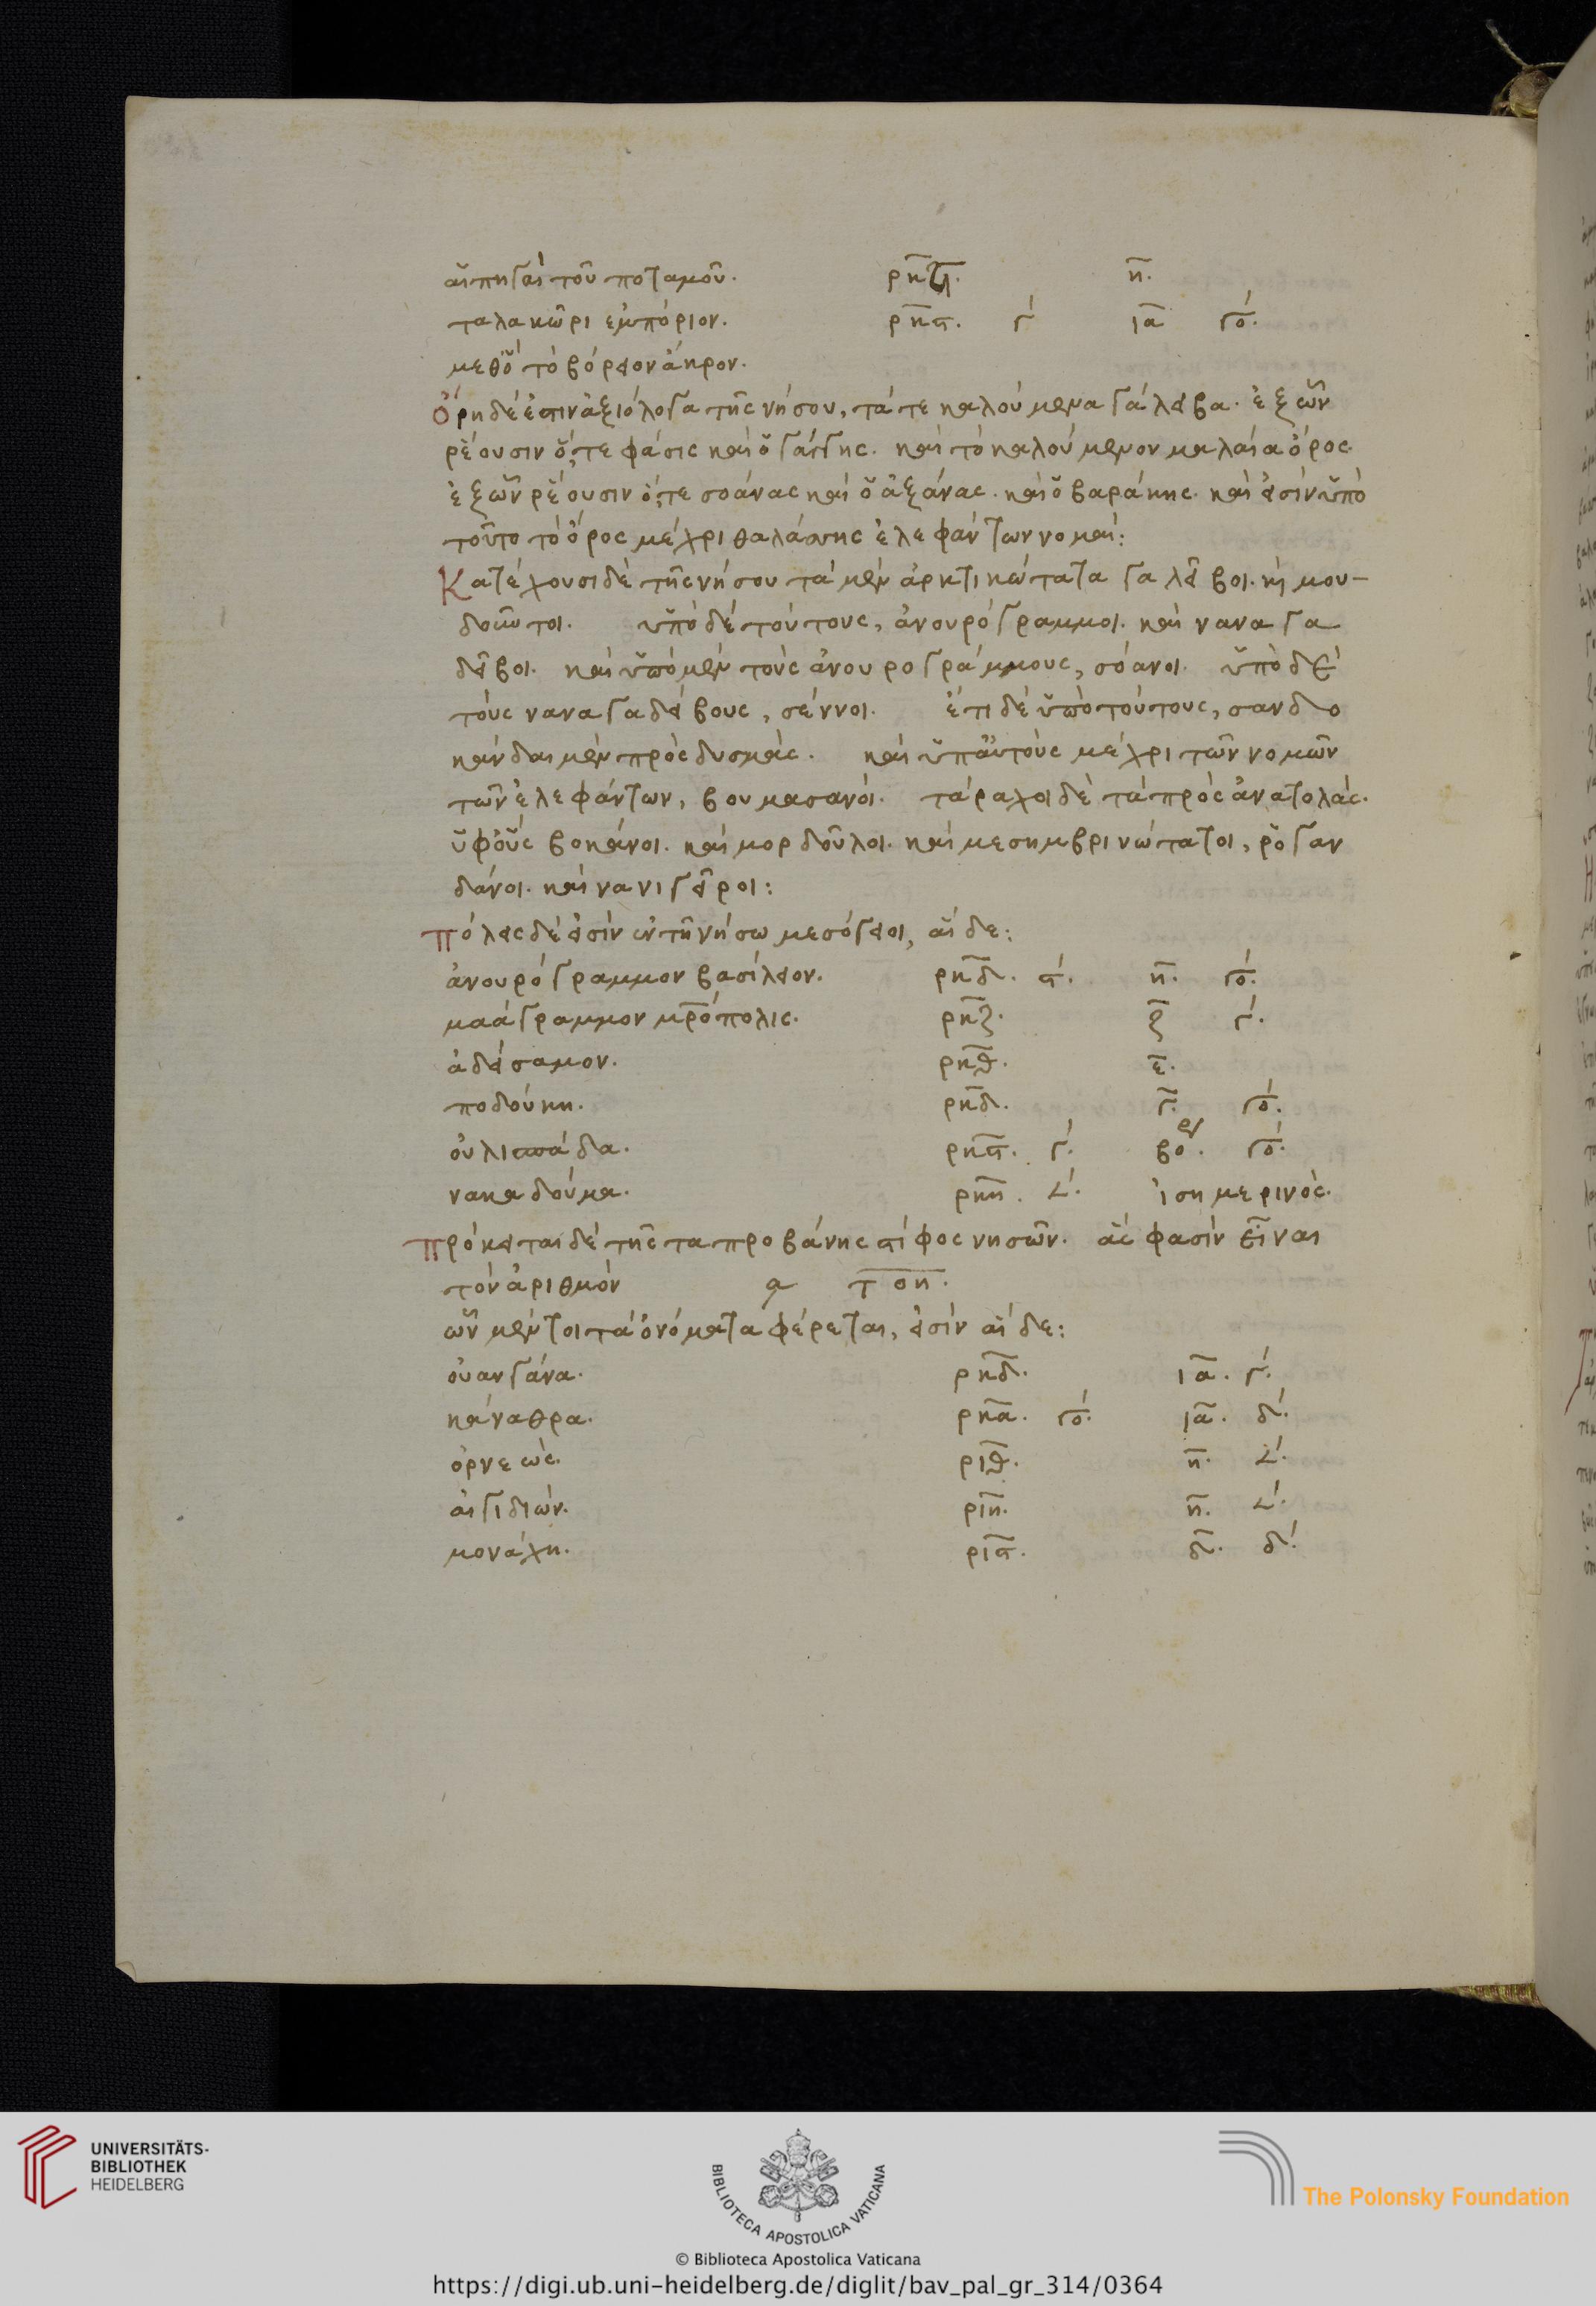 αἱ πηγαὶ τοῦ ποταμοῦ. ρκζ. η.
ταλακῶρι ἐμπόριον. ρκϛ. γ΄ ια γο΄.
μεθ' ὃ τὸ βόρειον ἄκρον.
Ὄρη δέ ἐστιν ἀξιόλογα τῆς νήσου, τά τε καλούμενα γάλειβα. ἐξ ὧν
ῥέουσιν ὅ, τε φάσις καὶ ὁ γάγγης. καὶ τὸ καλούμενον μαλαία ὄρος.
ἐξ ὧν ῥέουσιν ὅ, τε σοάνας καὶ ὁ ἀξάνας. καὶ ὁ βαράκης. καὶ εἰσὶν ὑπὸ
τοῦτο τὸ ὄρος μέχρι θαλάσσης ἐλεφάντων νομαί:
Κατέχουσι δὲ τῆς νήσου τὰ μὲν ἀρκτικώτατα γαλεῖβοι. κὶ μου-
δοῦττοι. ὑπὸ δὲ τούτους, ἀνουρόγραμμοι. καὶ ναναγα
δεῖβοι. καὶ ὑπὸ μὲν τοὺς ἀνουρογράμμους, σόανοι. ὑπὸ δὲ
τοὺς ναναγαδείβους, σέννοι. ἔτι δὲ ὑπὸ τούτους, σανδο
κάνδαι μὲν πρὸς δυσμάς. καὶ ὑπ' αὐτοὺς μέχρι τῶν νομῶν
τῶν ἐλεφάντων, βουμασανόι. τάραχοι δὲ τὰ πρὸς ἀνατολάς.
ὑφ' οὓς βοκάνοι. καὶ μορδοῦλοι. καὶ μεσημβρινώτατοι, ῥογαν
δάνοι. καὶ νανιγεῖροι:
πόλεις δέ εἰσιν ἐν τῆ νήσω μεσόγειοι, αἵδε:
ἀνουρόγραμμον βασίλειον. ρκδ. ϛ΄. η. γο΄.
μαάγραμμον μρόπολις. ρκζ. ζ γ΄.
ἀδείσαμον. ρκθ. ε.
ποδούκη. ρκδ. γ. γο΄.
οὐλισπάδα. ρκϛ. γ΄. βο. γο΄.
νακαδούμα. ρκη. 𐅵΄. ἰσημερινός.
πρόκειται δὲ τῆς ταπροβάνης στίφος νησῶν. ἅς φασὶν εἶναι
τὸν ἀριθμὸν α τοη.
ὧν μέντοι τὰ ὀνόματα φέρεται, εἰσὶν αἵδε:
οὐανγάνα. ρκδ. ια. γ΄.
κάναθρα. ρκα. γο΄. ια. δ΄.
ὀρνεὼς. ριθ. η. 𐅵΄.
αἰγιδιών. ριη. η. 𐅵΄.
μονάχη. ριϛ. δ. δ΄.
UNIVERSITÄTS-
BIBLIOTHEK
HEIDELBERG
BIBLIOTECA APOSTOLICA VATICANA
The Polonsky Foundation
© Biblioteca Apostolica Vaticana
https://digi.ub.uni-heidelberg.de/diglit/bav_pal_gr_314/0364